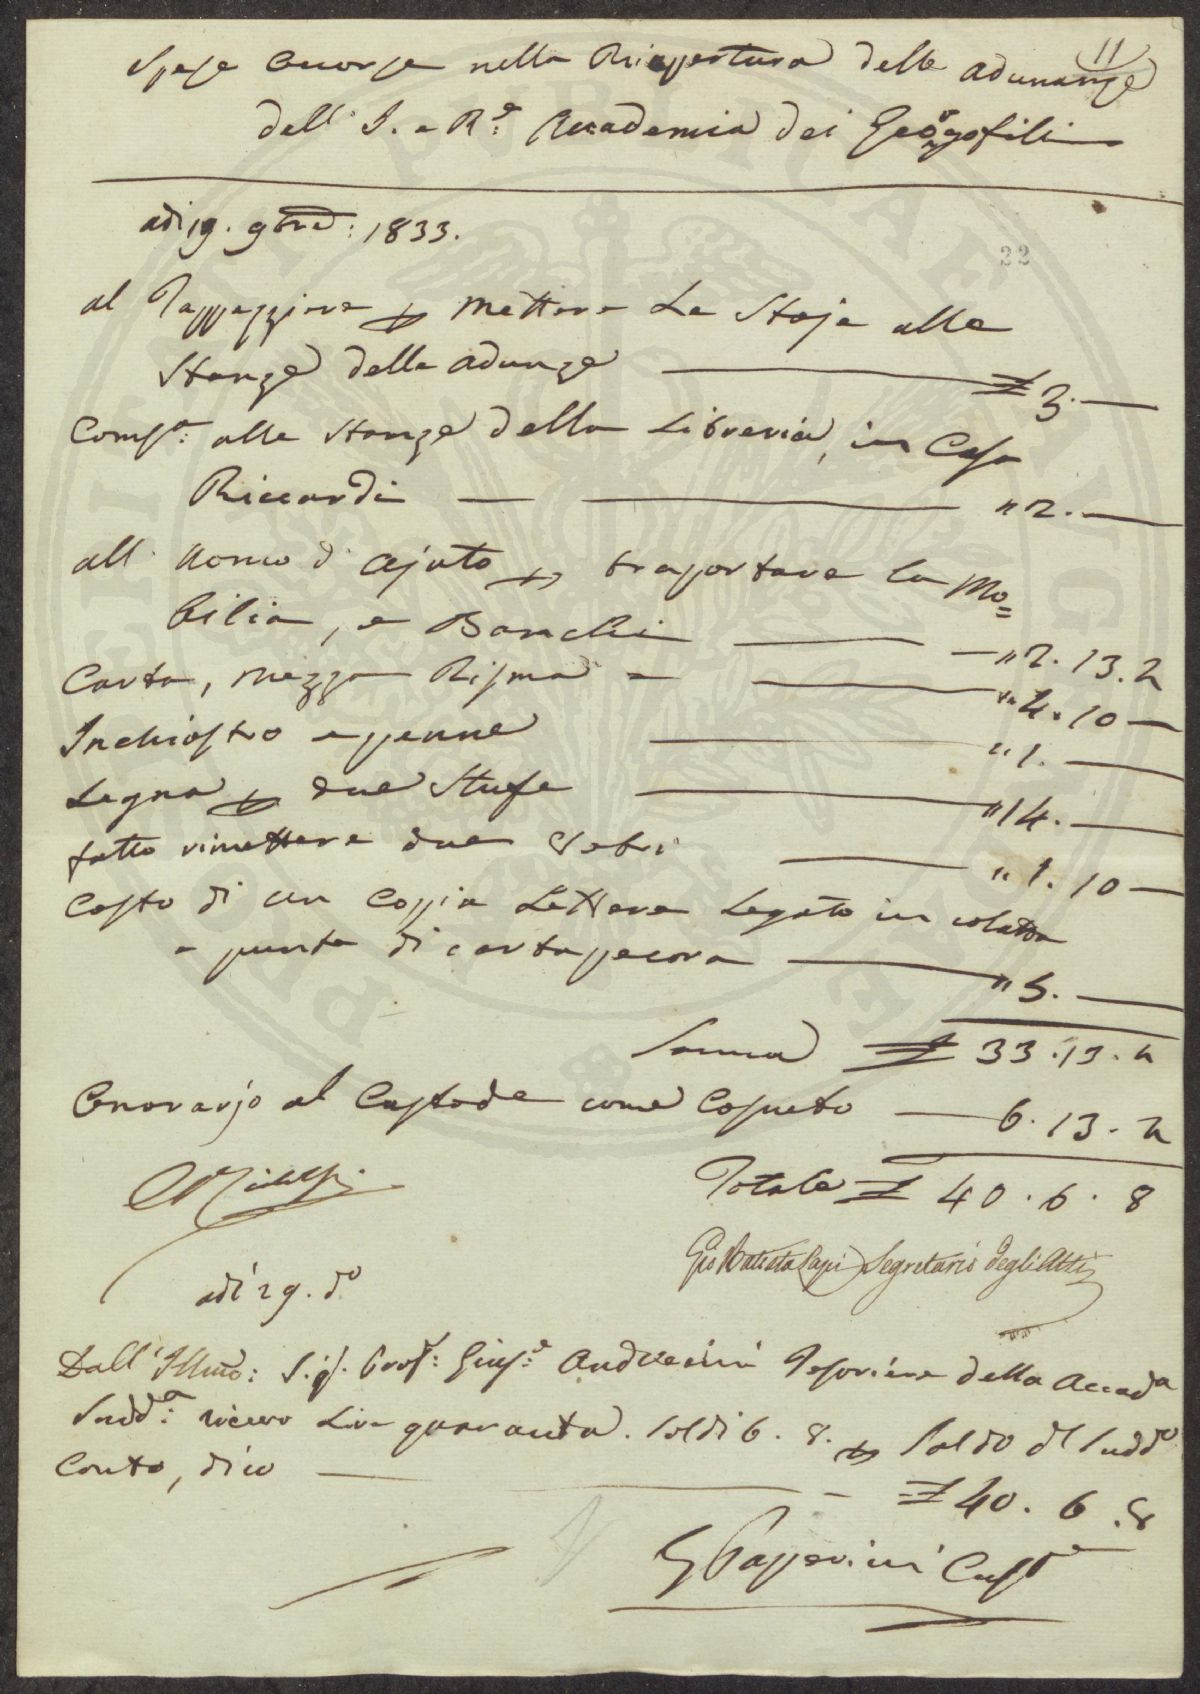 11
Spese occorse nella Riapertura delle adunanze
dell' I. e R.e Accademia dei Georgofili
adi 19. 9bre: 1833.
22
al Tappezziere p mettere Le Stoje alle
Stanze delle adunze £ 3. —
Comp.a: alle stanze della Libreria, in Casa
Riccardi — " 2. —
all' uomo d' ajuto p trasportare la Mo=
bilia, e Banchi — " 2. 13. 4
Carta, mezza Risma — " 4. 10 —
Inchiostro e penne " 1. —
Legna p due Stufe " 14. —
fatto rimettere due Vetri " 1. 10 —
Costo di un Coppia Lettere Legato in
e punte di cartapecora " 5. —
Somma £ 33. 13. 4
Onorarjo al Custode come Consueto — 6. 13. 4
Totale £ 40. 6. 8
Gio Batista Lapi Segretario degli Atti
adi 29. do
Dall' Illmo: Sig. Prof.r: Gius.e: Andreini Tesoriere della Accada
Sudd.a: ricevo Lire quaranta. soldi 6. 8. p Saldo del Suddo
Conto, dico —
£ 40. 6. 8
G Papperini Custe